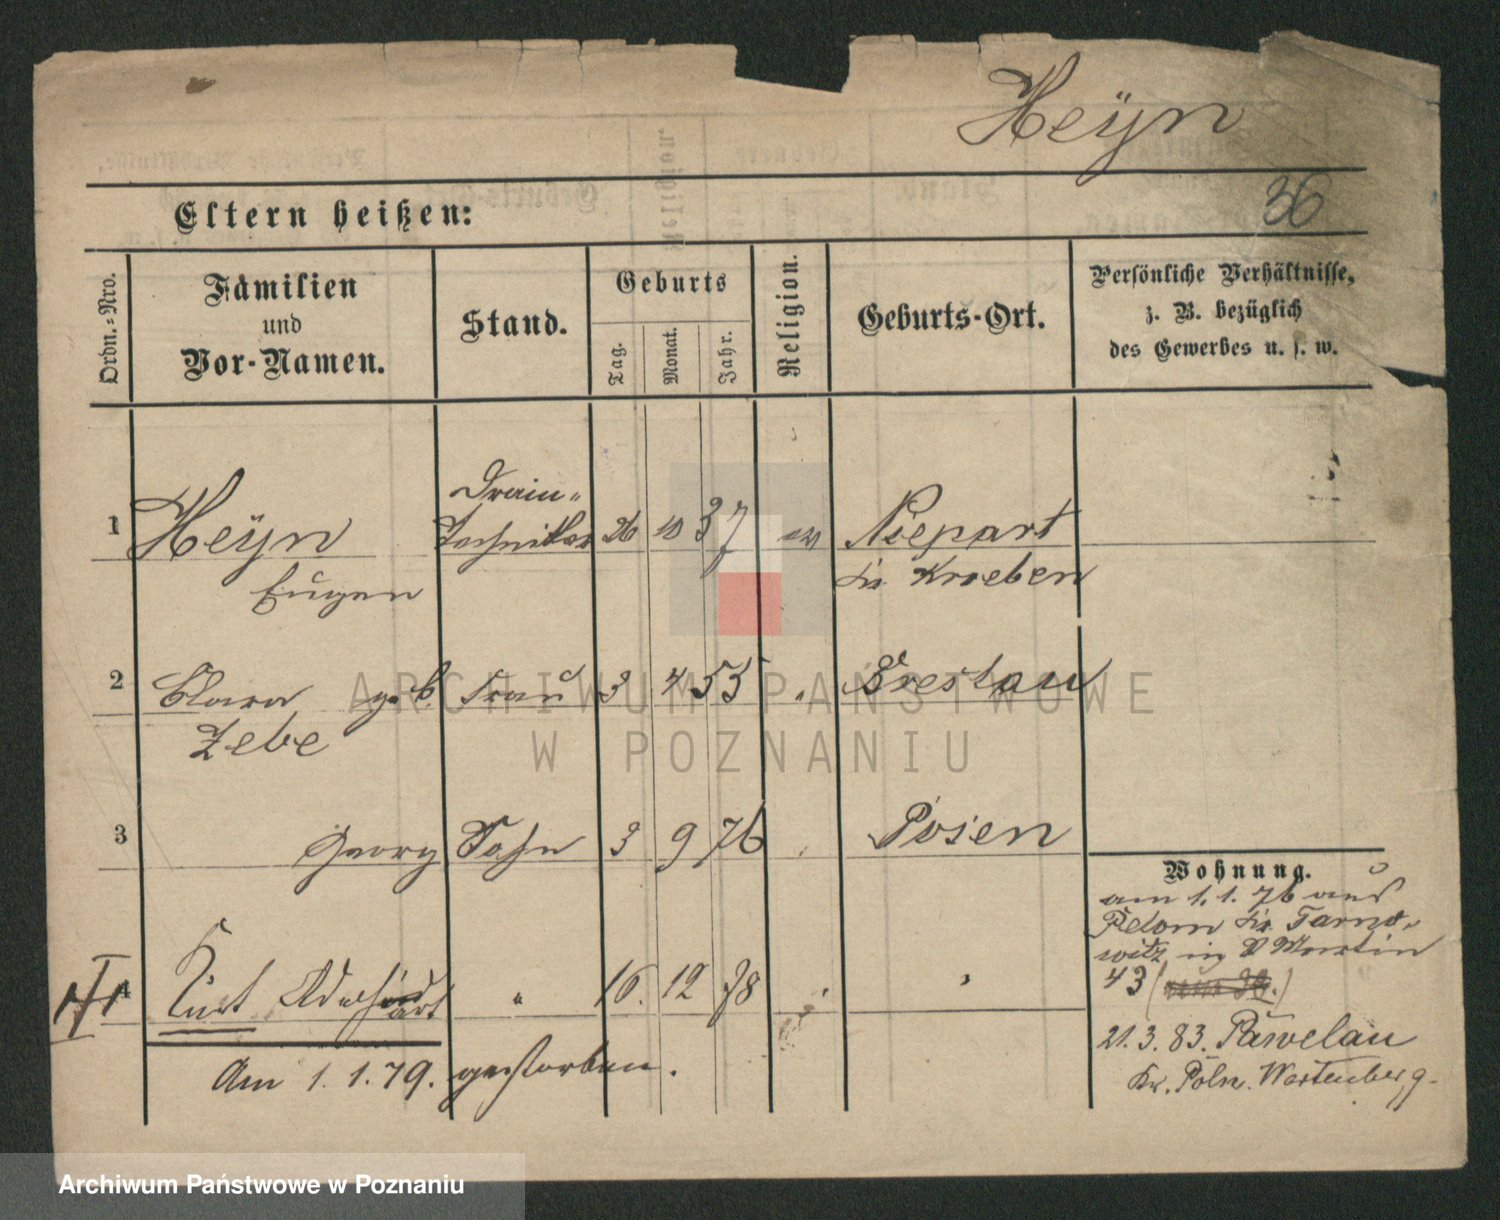 Heÿn
36
Eltern heißen:
Ordn.-Nro.
Familien
und
Vor-Namen.
Stand.
Geburts
Tag.
Monat.
Jahr.
Religion.
Geburts-Ort.
Persönliche Verhältnisse,
z. B. bezüglich
des Gewerbes u. s. w.
1 Heÿn Drain-
Techniker 26 10 37 ev Niepart
Eugen Kr. Kroeben
2 Clara geb. Frau 3 4 53 " Breslau
Zebe
3 Georg Sohn 3 9 76 Posen
Wohnung.
am 1.1.76 aus
Kr. Tarno-
witz in St Martin
43
4 Kurt " 16. 12 78 "
21.3.83. Pawelau
Kr. Poln. Wartenberg.
Am 1.1.79. gestorben.
ARCHIWUM PAŃSTWOWE
W POZNANIU
Archiwum Państwowe w Poznaniu